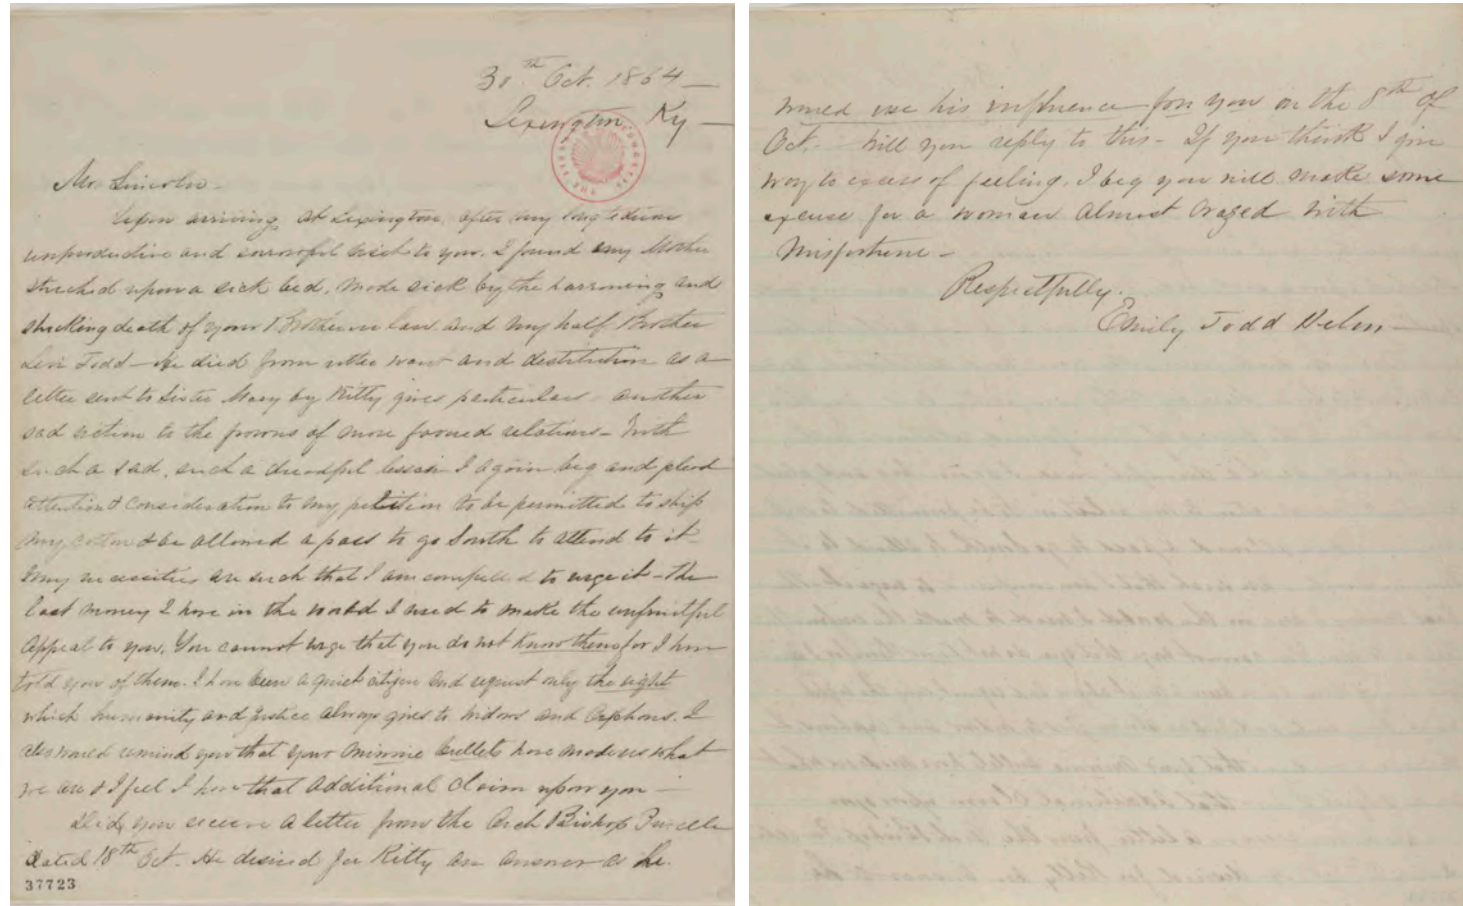 30th Oct. 1864 —
Lexington Ky —
Mr Lincoln —
Upon arriving at Lexington, after my long tedious
unproductive and sorrowful visit to you, I found my Mother
stretched upon a sick bed, made sick by the harrowing and
shocking death of your Brother in law and my half Brother
Levi Todd — He died from utter want and destitution as a
letter sent to Sister Mary by Kitty gives particulars — another
sad victim to the frowns of more favored relations — With
such a sad, such a dreadful lesson I again beg and plead
attention & consideration to my petition to be permitted to ship
my cotton & be allowed a pass to go South to attend to it —
My necessities are such that I am compelled to urge it — The
last money I have in the world I used to make the unfruitful
appeal to you. You cannot urge that you do not know them for I have
told you of them. I have been a quiet citizen and request only the right
which humanity and justice always gives to widows and Orphans. I
also would remind you that your minnie bullets have made us what
we are & I feel I have that additional claim upon you —
Did you receive a letter from the Arch Bishop Purcelle
dated 18th Oct. He desired for Kitty an answer as he
37723
would use his influence for you on the 8th of
Oct. — Will you reply to this — If you think I give
way to excess of feeling, I beg you will make some
excuse for a woman almost crazed with
misfortune —
Respectfully.
Emily Todd Helm —